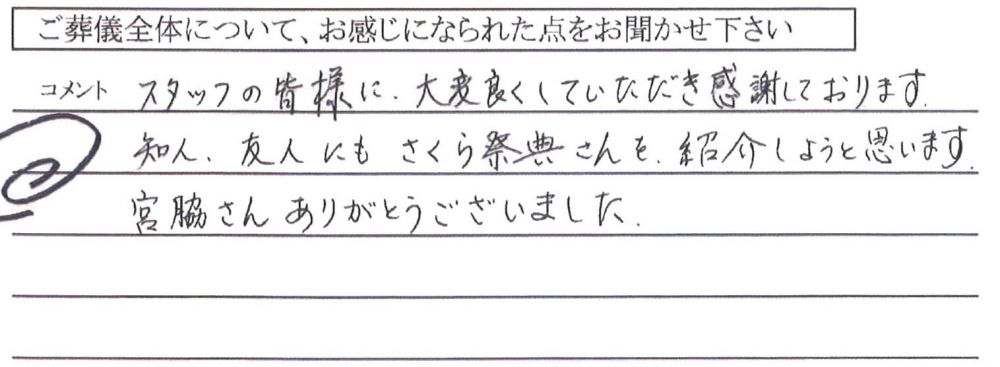 ご葬儀全体について、お感じになられた点をお聞かせ下さい
コメント スタッフの皆様に、大変良くしていただき感謝しております。
知人、友人にも さくら祭典さんを、紹介しようと思います。
宮脇さん ありがとうございました。